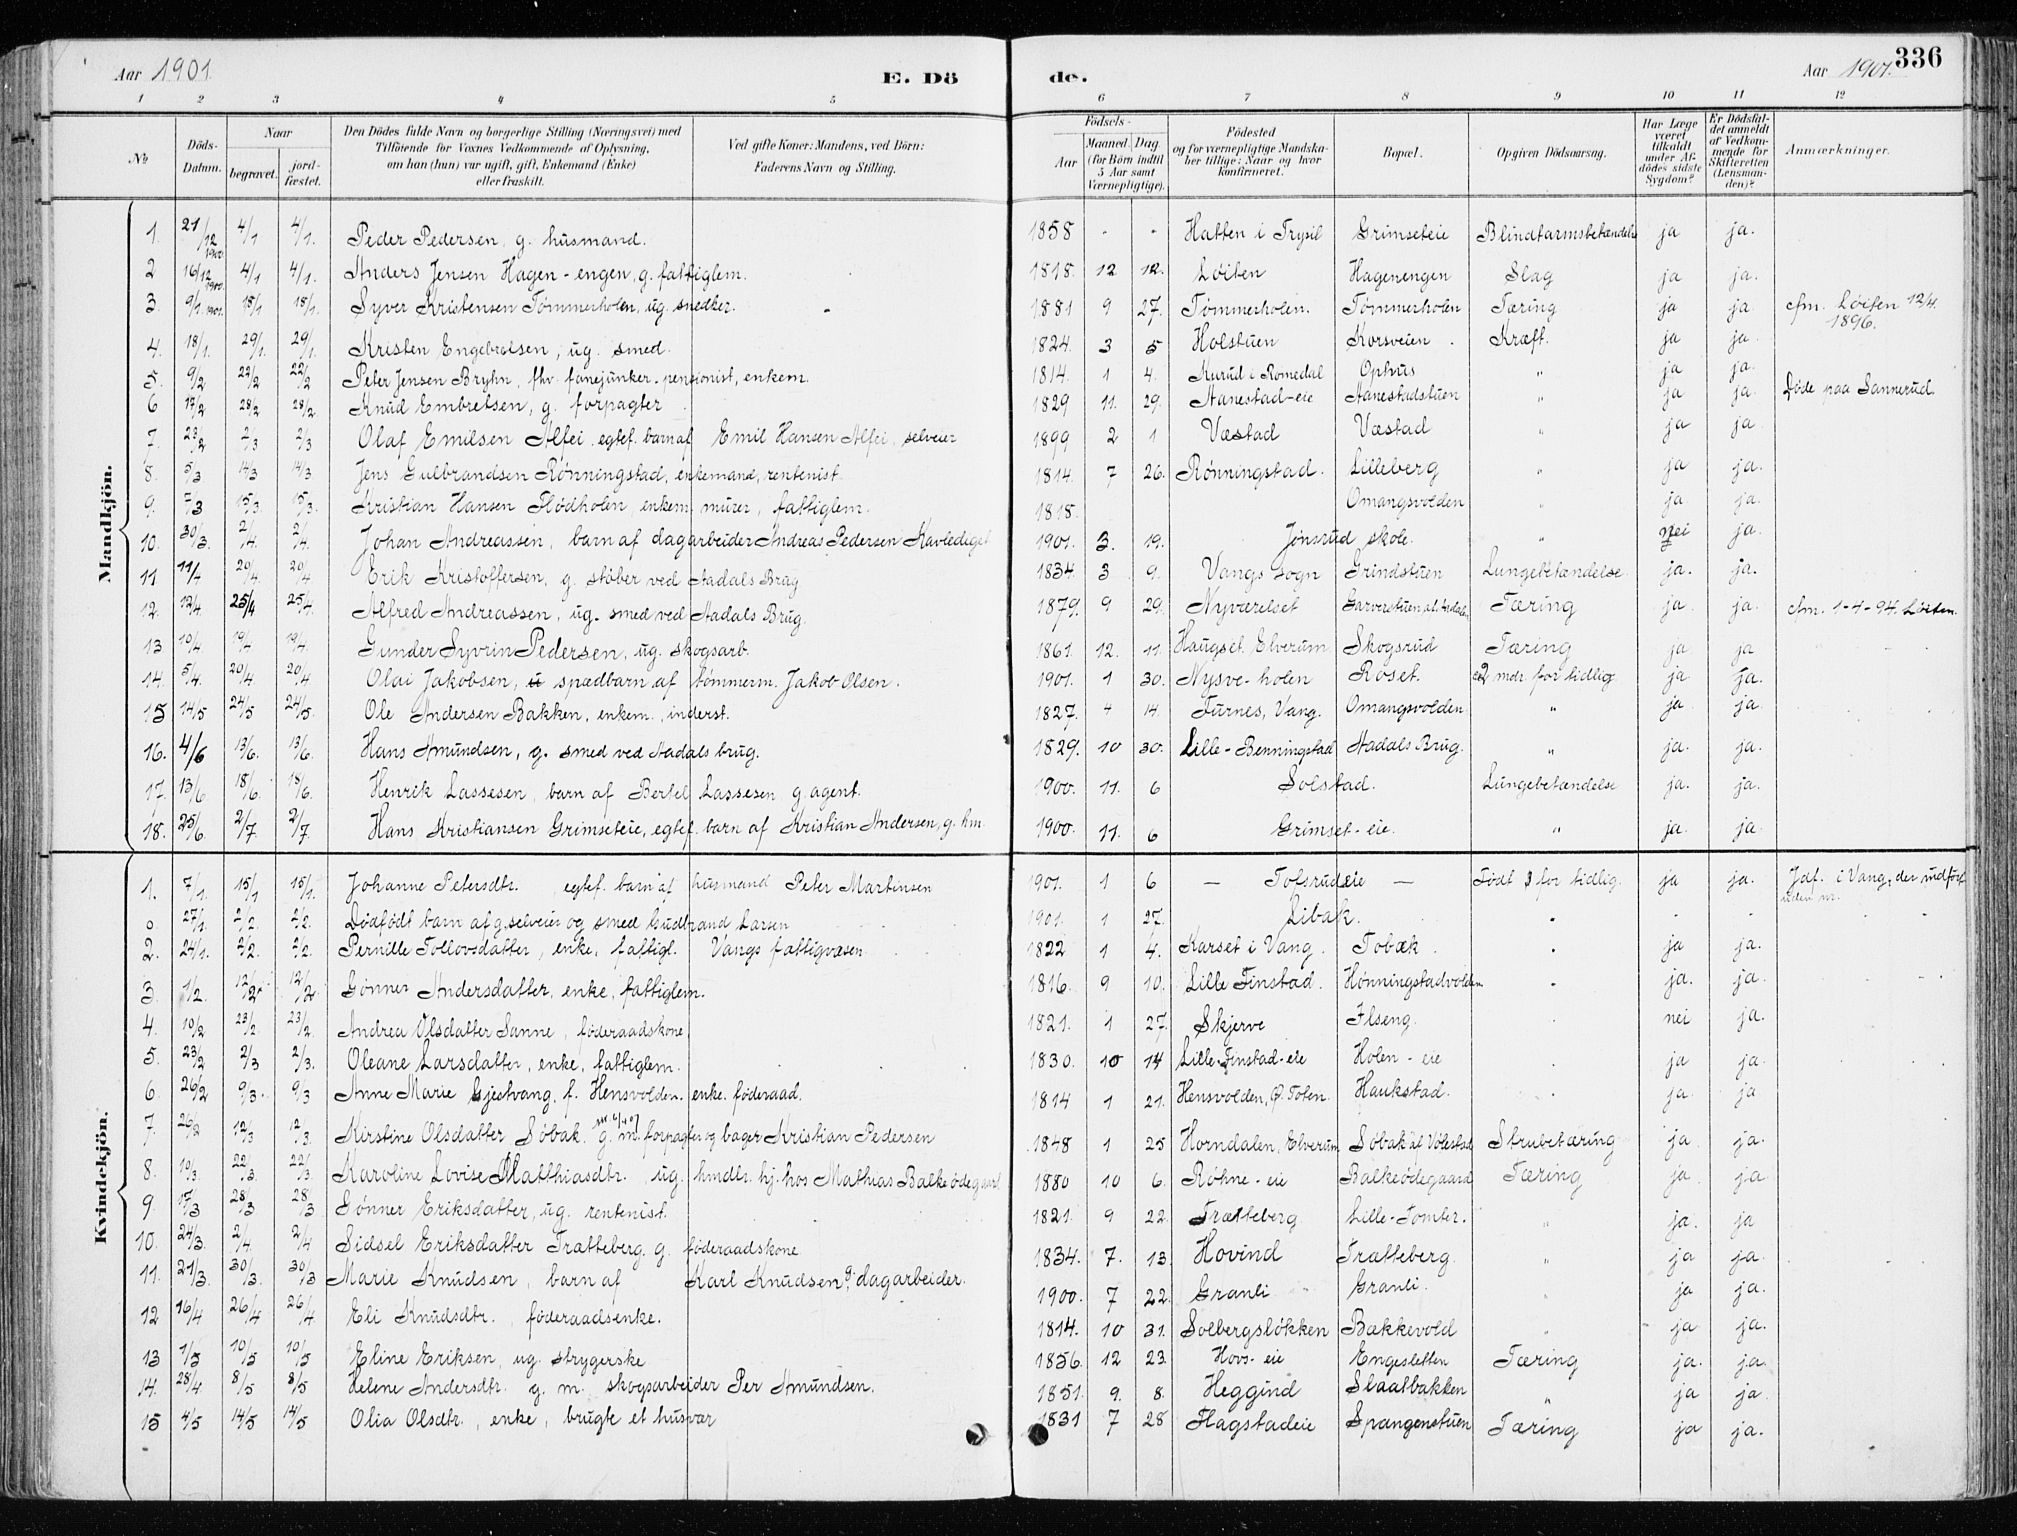 Aar 1901. E. Dö de. Aar 1901. 336
1 2 3 4 5 6 7 8 9 10 11 12
№ Döds-Datum. Naar begravet. jord-fæstet. Den Dödes fulde Navn og borgerlige Stilling (Næringsvei) med Tilföiende for Voxnes Vedkommende af Oplysning, om han (hun) var ugift, gift, Enkemand (Enke) eller fraskilt. Ved gifte Koner: Mandens, ved Börn: Faderens Navn og Stilling. Födsels- Aar Maaned. Dag. (for Börn indtil 5 Aar samt Værnepligtige). Födested og for værnepligtige Mandskaber tillige: Naar og hvor konfirmeret. Bopæl. Opgiven Dödsaarsag. Har Læge været tilkaldt under Afdödes sidste Sygdom? Er Dödsfaldet anmeldt af Vedkommende for Skifteretten (Lensmanden)? Anmærkninger.
Mandkjön.
1. 21/12 1900 4/1 4/1. Peder Pedersen, g. husmand. 1858 - - Hatten i Trysil Grimseteie Blindtarmsbetændelse ja ja.
2 16/12 1900. 4/1 4/1. Anders Jensen Hagen-engen, g. fattiglem. 1818. 12 12. Løiten Hagenengen Slag ja ja.
3. 9/1 1901. 15/1 15/1. Syver Kristensen Tømmerholen, ug. snedker. 1881 9 27. Tømmerholen. Tømmerholen Tæring ja ja cfm. Løiten 12/4. 1896.
4. 18/1. 29/1. 29/1. Kristen Engebretsen, ug. smed. 1824. 3 5 Holstuen Korsveien. Kræft. ja ja.
5. 9/2 22/2 22/2 Peter Jensen Bryhn, fhv. fanejunker. pensionist, enkem. 1814. 1 4. Kurud i Romedal Ophus " ja ja.
6 17/2 28/2 28/2. Knud Embretsen, g. forpagter 1829 11. 29. Aanestad-eie Aanestadstuen " ja ja. Døde paa Sannerud.
7. 23/2 2/3 2/3 Olaf Emilsen Alfei, egtef. barn af Emil Hansen Alfei, selveier 1899 2 1 Væstad Væstad " ja ja.
8. 5/3 14/3 14/3 Jens Gulbrandsen Rønningstad, enkemand, rentenist. 1814. 7 26. Rønningstad. Lilleberg " ja ja.
9. 7/3 15/3 15/3. Kristian Hansen Flødholen, enkem. murer, fattiglem. 1818. Omangsvolden " ja ja.
10. 30/3. 2/4. 2/4. Johan Andreassen, barn af dagarbeider Andreas Pedersen 1901. 3. 19. Jønsrud skole. " nei ja.
11 11/4 20/4. 20/4 Erik Kristoffersen, g. støber ved Aadals Brug 1834. 3 9. Vangs sogn Grindstuen Lungebetændelse. ja. ja.
12. 12/4 25/4 25/4. Alfred Andreassen, ug. smed ved Aadals Brug. 1879. 9 29. Nyværelset Garverstuen Tæring ja ja. cfm. 1-4-94. Løiten.
13 10/4 19/4. 19/4. Gunder Syvrin Pedersen, ug. skogsarb. 1861. 12. 11. Haugset. Elverum Skogsrud Tæring ja ja
14. 5/4. 20/4 20/4 Olai Jakobsen, spædbarn af tømmerm. Jakob Olsen. 1901. 1 30. Nysve-holen Roset. 2 mdr. for tidlig. ja ja.
15 14/5 24/5 24/5. Ole Andersen Bakken, enkem., inderst. 1827. 4 14. Furnes, Vang. Omangsvolden " ja ja.
16. 4/6 13/6. 13/6. Hans Amundsen, g. smed ved Aadals brug. 1829. 10 30. Lille-Benningstad Aadals Brug. " ja. ja.
17. 13/6 18/6. 18/6. Henrik Lassesen, barn af Bertel Lassesen g. agent. 1900. 11. 6 Solstad. Lungebetændelse ja. ja.
18. 25/6. 2/7 2/7 Hans Kristiansen Grimseteie, egtef. barn af Kristian Andersen, g. hm. 1900. 11. 6 Grimset-eie. " ja. ja
Kvindekjön.
1. 7/1. 15/1 15/1. Johanne Petersdtr. egtef. barn af husmand Peter Martinsen 1901. 1 6 — Tofsrudeie — Født 3 for tidlig. ja ja. Jdf. i Vang, der indført uden nr.
0. 27/1. 2/2. 2/2. Dødfødt barn af g. selveier og smed Gudbrand Larsen 1901. 1 27. Libak. - - -
2. 24/1. 2/2. 2/2. Pernille Tollovsdatter, enke, fattigl. Vangs fattigvæsen. 1822 1 4. Karset i Vang. Tobæk. ja ja.
3. 1/2. 12/2. 12/2. Gønner Andersdatter, enke, fattiglem. 1816. 9 10. Lille Finstad. Hønningstadvolden ja. ja.
4. 10/2 23/2 23/2. Andrea Olsdatter Sanne, føderaadskone. 1821. 1 27. Skjerve Ilseng. nei ja.
5. 23/2 2/3 2/3. Oleane Larsdatter, enke, fattiglem. 1830. 10 14 Lille-Finstad-eie Holen-eie ja ja.
6 26/2 9/3. 9/3 Anne Marie Gjestvang, f. Hensvolden. enke. føderaad. 1814 1 21. Hensvolden, Ø. Toten. Haukstad. ja. ja
7. 26/2 12/3 12/3. Kirstine Olsdatter Søbak. g. m. forpagter og bager Kristian Pedersen 1848 1 25 Horndalen, Elverum Søbak af Volestad Strubetæring ja. ja.
8. 10/3. 22/3. 22/3 Karoline Lovise Matthiasdtr. ug. hmdtr. hj. hos Mathias Balkeødegaard 1880 10 6. Røhne-eie Balkeødegaard Tæring ja ja
9 17/3 28/3 28/3 Gønner Eriksdatter, ug. rentenist. 1821. 9 22. Trætteberg Lille-Tomter. " ja. ja
10. 24/3. 2/4. 2/4 Sidsel Eriksdatter Trætteberg g. føderaadskone. 1834. 7. 13. Hovind Trætteberg. " ja ja.
11. 21/3. 30/3. 30/3 Marie Knudsen, barn af Karl Knudsen g. dagarbeider. 1900. 7 22. Granli " Granli. ja ja.
12 16/4 26/4 26/4 Eli Knudsdtr. føderaadsenke. 1814. 10 31. Solbergsløkken Bækkevold " ja ja.
13 1/5 10/5 10/5 Eline Eriksen, ug. strygerske 1856. 12 23. Hovs-eie Engesletten Tæring ja. ja.
14. 28/4 8/5 8/5 Helene Andersdtr. g. m. skogsarbeider Per Amundsen. 1851. 9. 8. Heggind Slaatbakken " ja ja.
15 4/5 14/5 14/5 Olia Olsdtr., enke, brugte et husvær 1831 7 28 Flagstadeie Spangenstuen Tæring ja ja.